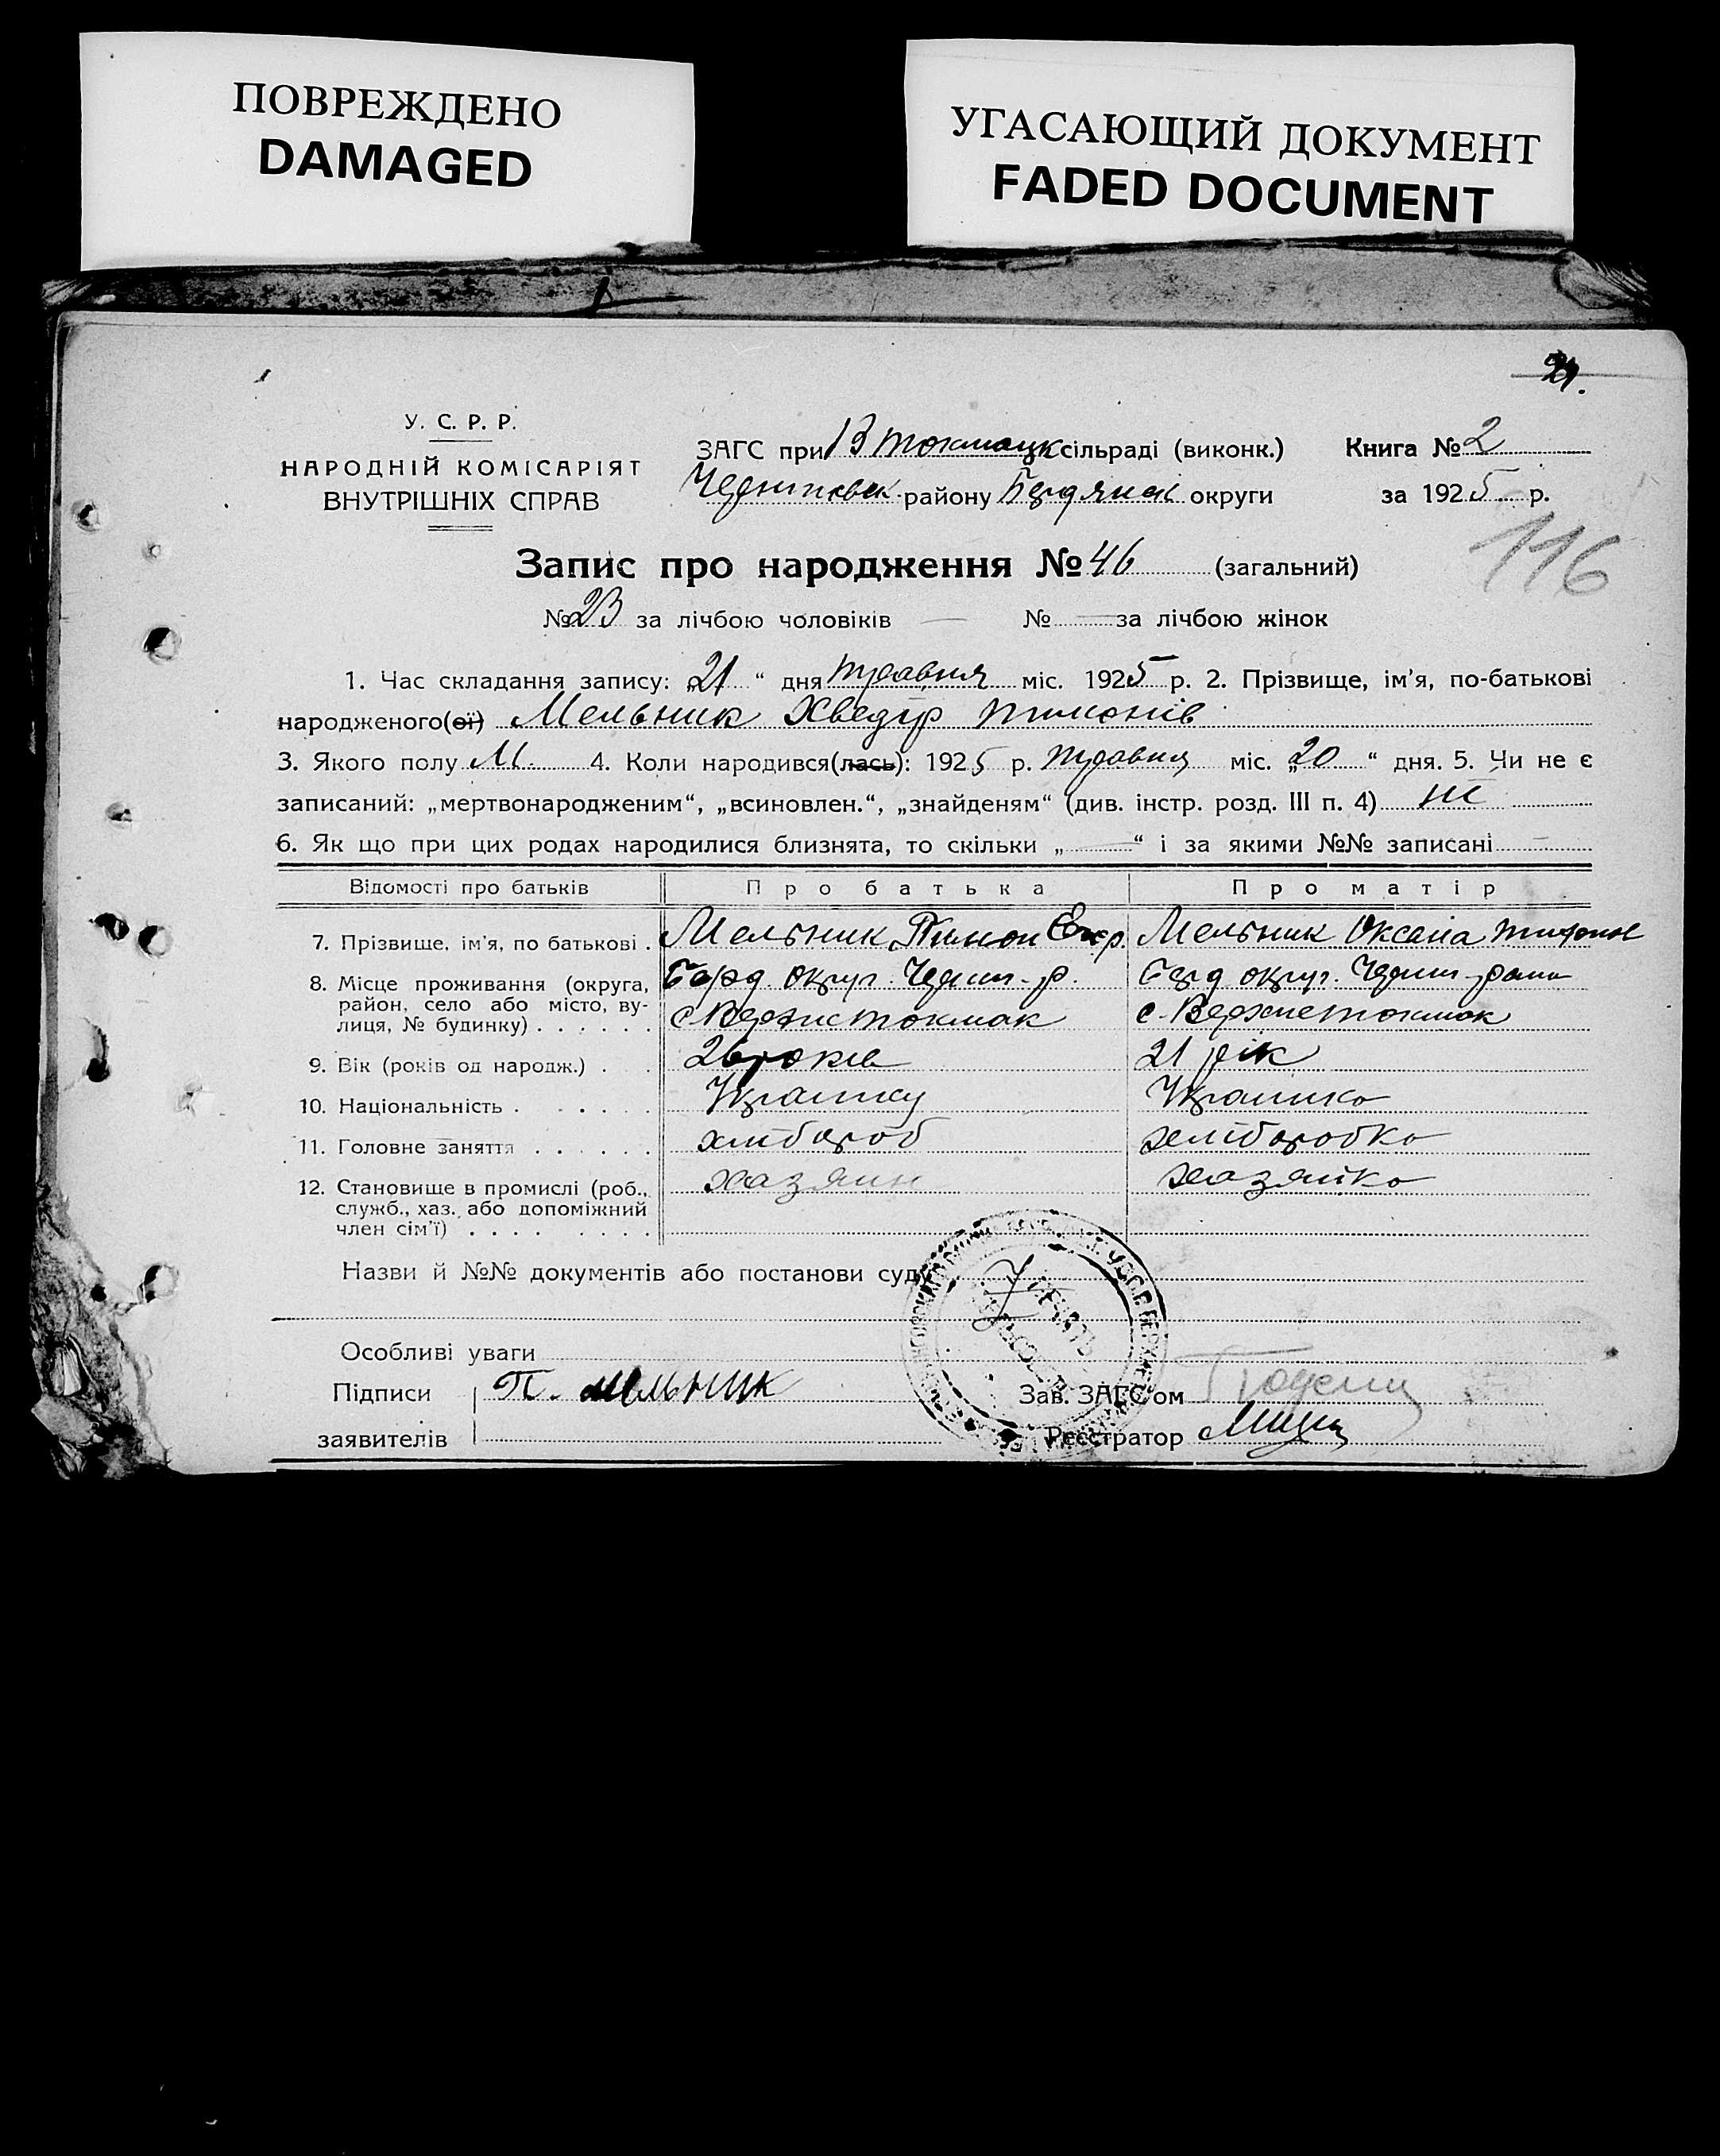 ПОВРЕЖДЕНО
DAMAGED
УГАСАЮЩИЙ ДОКУМЕНТ
FADED DOCUMENT
21.
У. С. Р. Р.
НАРОДНІЙ КОМІСАРІЯТ
ВНУТРІШНІХ СПРАВ
ЗАГС при В Токмацк сільраді (виконк.) Книга № 2
Черниговск. району Бердянск округи за 1925 р.
116
Запис про народження № 46 (загальний)
№ 23 за лічбою чоловіків — № — за лічбою жінок
1. Час складання запису: „21“ дня травня міс. 1925 р. 2. Прізвище, ім’я, по-батькові
народженого(ої) Мельник Хведір Тимонів
3. Якого полу М. 4. Коли народився(лась): 1925 р. травня міс. „20“ дня. 5. Чи не є
записаний: „мертвонародженим“, „всиновлен.“, „знайденям“ (див. інстр. розд. III п. 4) ні
6. Як що при цих родах народилися близнята, то скільки „—“ і за якими №№ записані —
Відомості про батьків Про батька Про матір
7. Прізвище, ім’я, по батькові . Мельник Тимон Мельник Оксана
8. Місце проживання (округа, Берд. округ. Черниг. р. Берд округ. Черниг. райо
район, село або місто, ву- с Верхнетокмак с. Верхнетокмак
лиця, № будинку) . . . . . .
9. Вік (років од народж.) . . 26 років 21 рік
10. Національність . . . . . . Українц Українка
11. Головне заняття . . . . . . хлібороб хліборобка
12. Становище в промислі (роб., хазяин хазяйка
служб., хаз. або допоміжний
член сім’ї) . . . . . . . .
Назви й №№ документів або постанови суду
Особливі уваги
Підписи П. Мельник Зав. ЗАГС’ом
заявителів Реєстратор